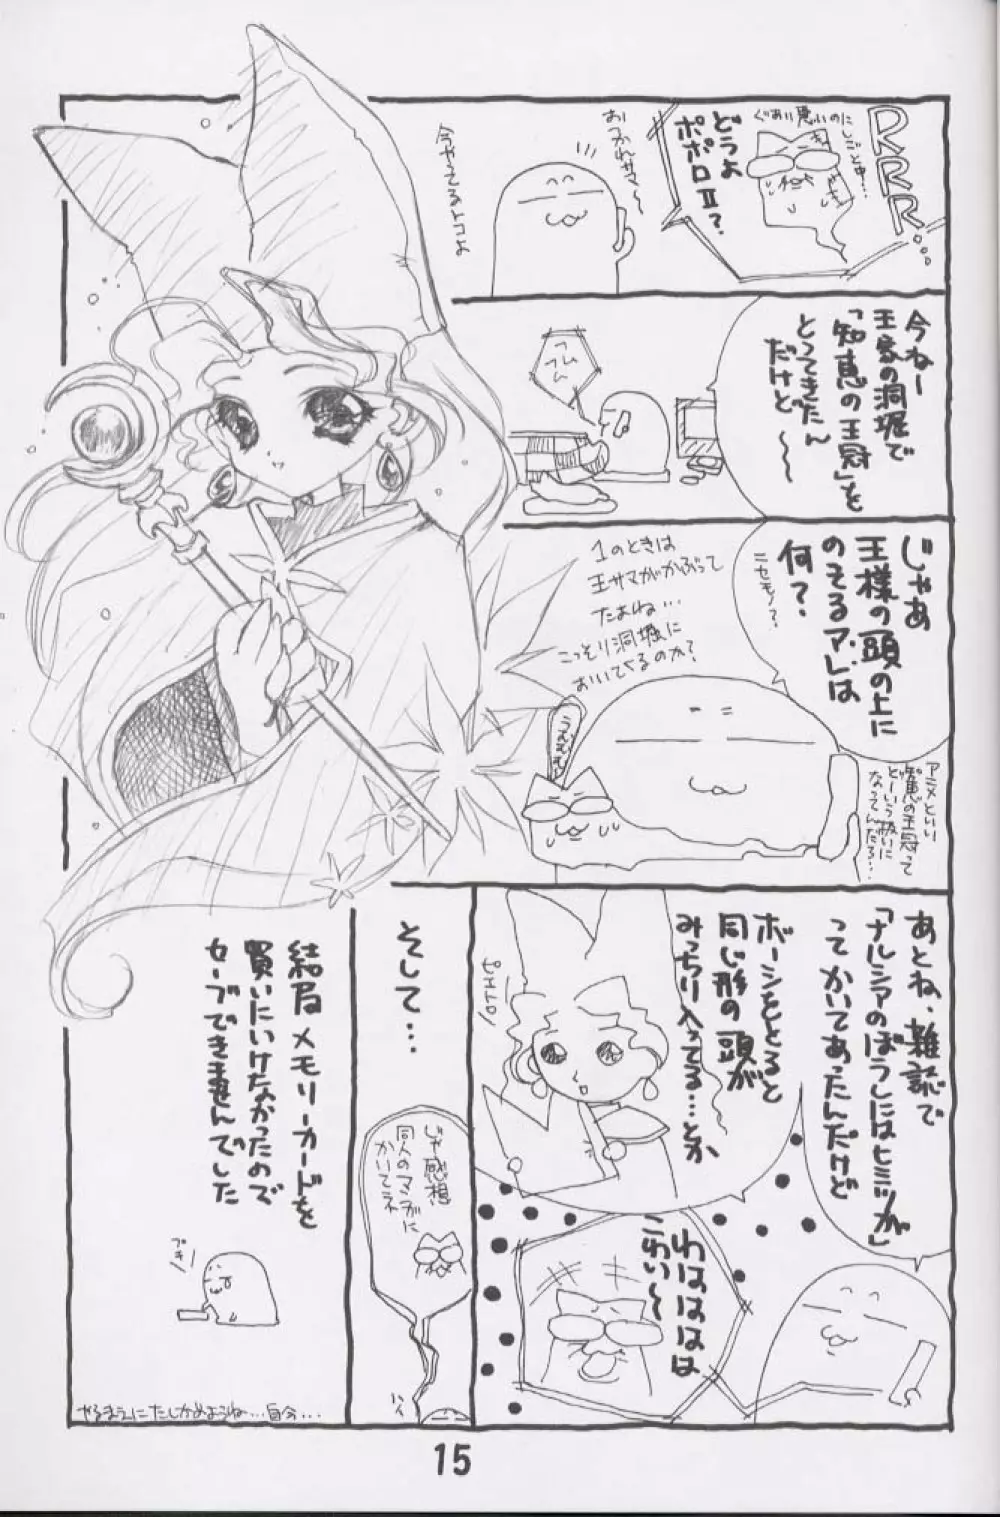 RRR...
ぐあい悪いのにしごと中…
どうよ
ポポロⅡ?
おつかれサマ〜
今やってるトコよ
今ねー
王家の洞堀で
「知恵の王冠」を
とってきたん
だけど〜〜
フム
フム
じゃあ
王様の頭の上に
のってるアレは
何?
ニセモノ?
1のときは
王サマがかぶって
たよね…
こっそり洞堀に
おいてくるのか?
ううむむ
アニメといい
知恵の王冠って
どーいう扱いに
なってんだろ…
あとね、雑誌で
「ナルシアのぼうしにはヒミツが」
ってかいてあったんだけど
ボーシをとると
同じ形の頭が
みっちり入ってる…とか
ピエトロ
わははは
こわい〜
そして…
じゃ感想
同人のマンガに
かいてネ
ハイ
結局メモリーカードを
買いにいけなかったので
セーブできませんでした
プチ
やるまえにたしかめようね…自分…
15